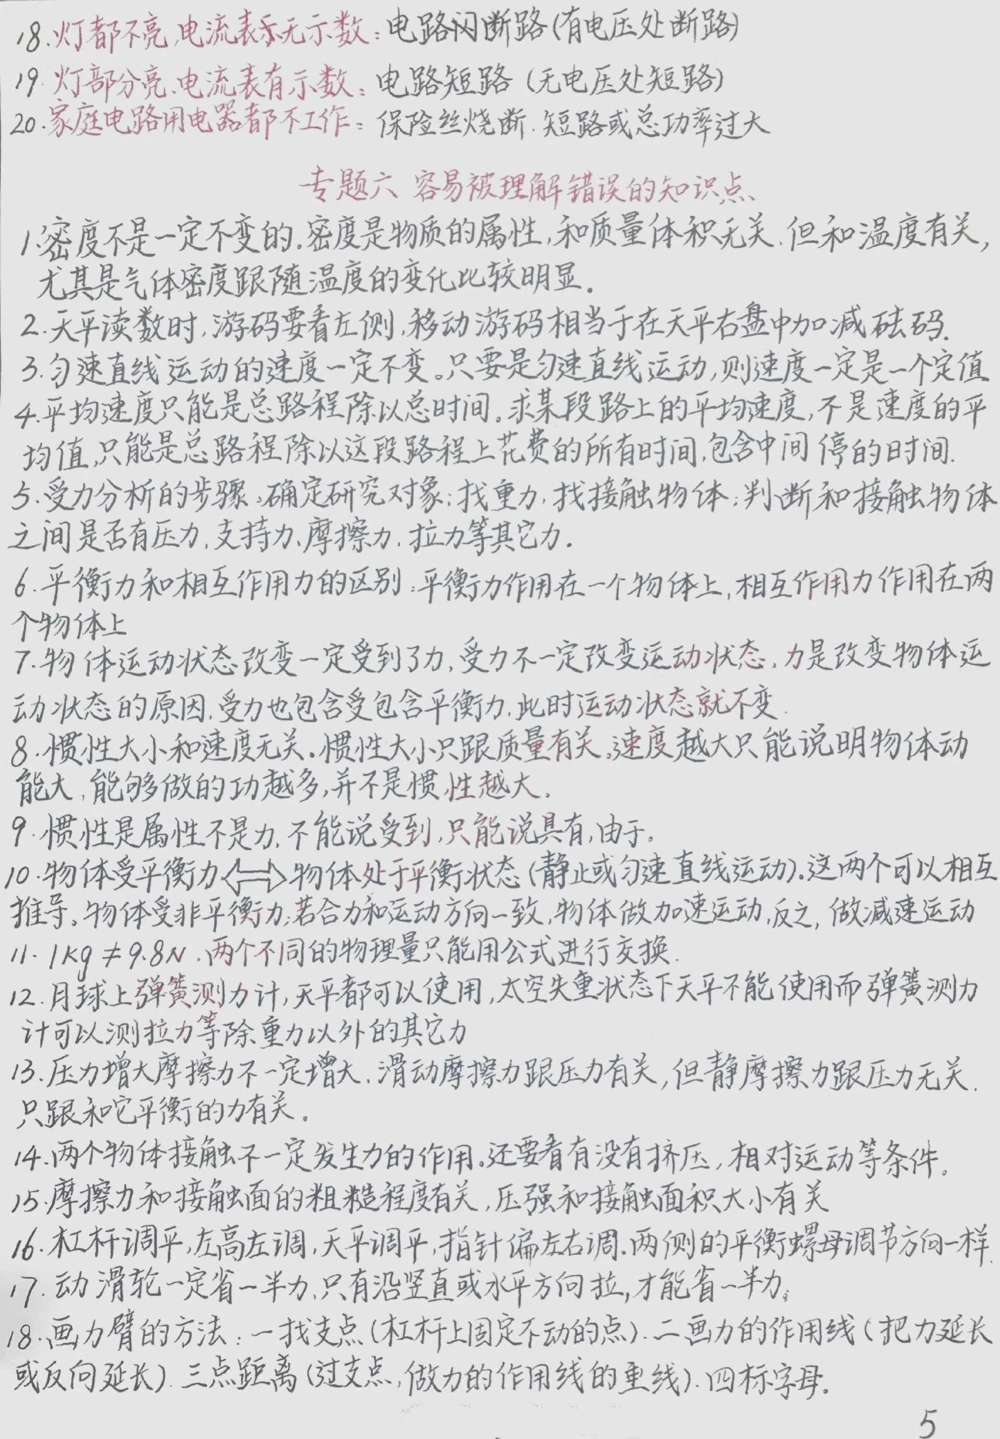 18.灯都不亮,电流表示无示数:电路闪断路(有电压处断路)
19.灯部分亮.电流表有示数:电路短路(无电压处短路)
20.家庭电路用电器都不工作:保险丝烧断.短路或总功率过大
专题六 容易被理解错误的知识点
1.密度不是一定不变的.密度是物质的属性,和质量体积无关.但和温度有关,
尤其是气体密度跟随温度的变化比较明显.
2.天平读数时,游码要看左侧,移动游码相当于在天平右盘中加减砝码.
3.匀速直线运动的速度一定不变。只要是匀速直线运动,则速度一定是一个定值
4.平均速度只能是总路程除以总时间.求某段路上的平均速度,不是速度的平
均值,只能是总路程除以这段路程上花费的所有时间,包含中间停的时间.
5.受力分析的步骤:确定研究对象;找重力,找接触物体;判断和接触物体
之间是否有压力.支持力.摩擦力.拉力等其它力.
6.平衡力和相互作用力的区别:平衡力作用在一个物体上,相互作用力作用在两
个物体上
7.物体运动状态改变一定受到了力,受力不一定改变运动状态.力是改变物体运
动状态的原因.受力也包含受包含平衡力.此时运动状态就不变.
8.惯性大小和速度无关.惯性大小只跟质量有关.速度越大只能说明物体动
能大,能够做的功越多,并不是惯性越大.
9.惯性是属性不是力.不能说受到,只能说具有,由于.
10.物体受平衡力⟺物体处于平衡状态(静止或匀速直线运动).这两个可以相互
推导。物体受非平衡力;若合力和运动方向一致,物体做加速运动,反之,做减速运动
11.1kg≠9.8N.两个不同的物理量只能用公式进行交换.
12.月球上弹簧测力计,天平都可以使用,太空失重状态下天平不能使用而弹簧测力
计可以测拉力等除重力以外的其它力
13.压力增大摩擦力不一定增大.滑动摩擦力跟压力有关,但静摩擦力跟压力无关.
只跟和它平衡的力有关.
14.两个物体接触不一定发生力的作用.还要看有没有挤压,相对运动等条件.
15.摩擦力和接触面的粗糙程度有关,压强和接触面积大小有关
16.杠杆调平,左高左调,天平调平,指针偏左右调.两侧的平衡螺母调节方向一样.
17.动滑轮一定省一半力.只有沿竖直或水平方向拉,才能省一半力.
18.画力臂的方法:一找支点(杠杆上固定不动的点).二画力的作用线(把力延长
或反向延长).三点距离(过支点,做力的作用线的垂线).四标字母.
5